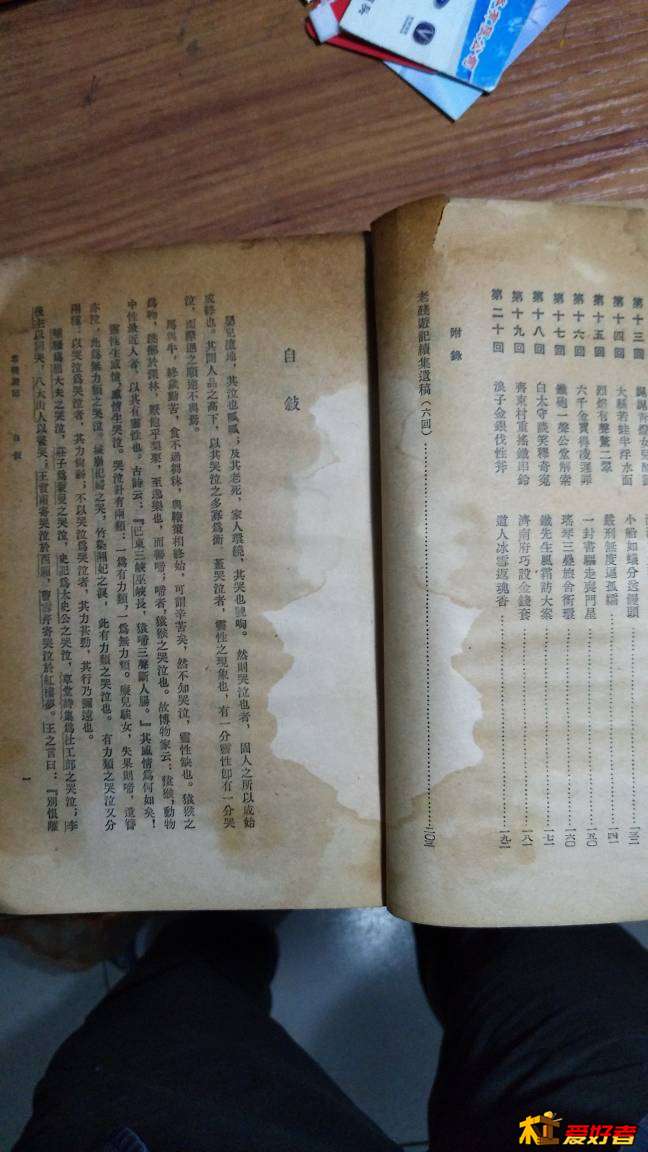 第十三回 娓娓青燈女
第十四回 大縣若蛙半浮水面 小船如蟻分送饅頭……一三二
第十五回 烈焰有聲驚二翠 嚴刑無度逼孤孀……一四一
第十六回 六千金買得凌遲罪 一封書驅走喪門星……一五〇
第十七回 鐵砲一聲公堂解索 瑤琴三疊旅舍銜環……一六〇
第十八回 白太守談笑釋奇冤 鐵先生風霜訪大案……一七二
第十九回 齊東村重搖鐵串鈴 濟南府巧設金錢套……一八一
第二十回 浪子金銀伐性斧 道人冰雪返魂香……一九二
附錄
老殘遊記續集遺稿（六回）……二〇三
自敍
嬰兒墮地，其泣也呱呱；及其老死，家人環繞，其哭也號啕。然則哭泣也者，固人之所以成始
成終也。其間人品之高下，以其哭泣之多寡爲衡。蓋哭泣者，靈性之現象也，有一分靈性卽有一分哭
泣，而際遇之順逆不與焉。
馬與牛，終歲勤苦，食不過芻秣，與鞭策相終始，可謂辛苦矣，然不知哭泣，靈性缺也。猿猴之
爲物，跳擲於深林，厭飽乎梨栗，至逸樂也，而善啼；啼者，猿猴之哭泣也。故博物家云：猿猴，動物
中性最近人者，以其有靈性也。古詩云：『巴東三峽巫峽長，猿啼三聲斷人腸。』其感情爲何如矣！
靈性生感情，感情生哭泣。哭泣計有兩類：一爲有力類，一爲無力類。癡兒騃女，失果則啼，遺簪
亦泣，此爲無力類之哭泣。城崩杞婦之哭，竹染湘妃之淚，此有力類之哭泣也。有力類之哭泣又分
兩種：以哭泣爲哭泣者，其力尙弱；不以哭泣爲哭泣者，其力甚勁，其行乃彌遠也。
離騷爲屈大夫之哭泣，莊子爲蒙叟之哭泣，史記爲太史公之哭泣，草堂詩集爲杜工部之哭泣；李
後主以詞哭，八大山人以畫哭；王實甫寄哭泣於西廂，曹雪芹寄哭泣於紅樓夢。王之言曰：『別恨離
老殘遊記 自敍
一
杠爱好者